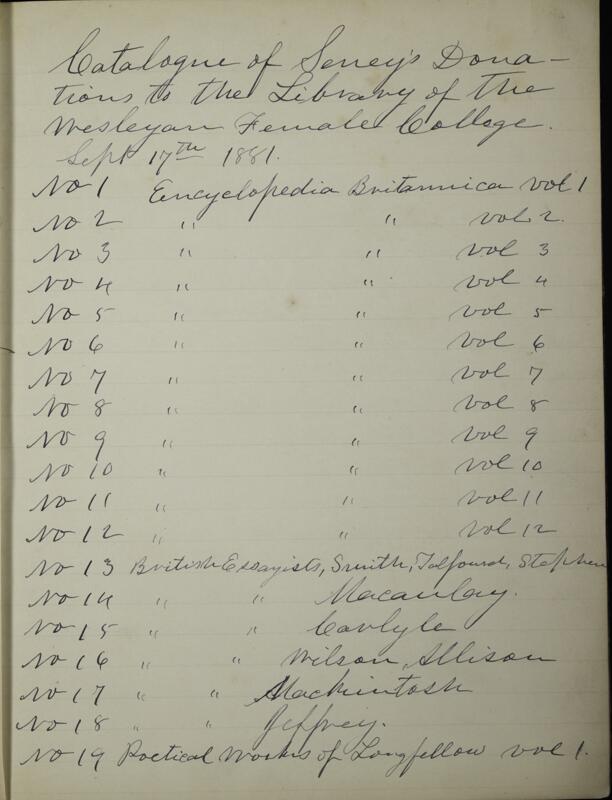 Catalogue of Seney's Dona-
tions to the Library of the
Wesleyan Female College.
Sept 17th 1881.
No 1 Encyclopedia Britannica vol 1
No 2 " " vol 2.
No 3 " " vol 3
No 4 " " vol 4
No 5 " " vol 5
No 6 " " vol 6
No 7 " " vol 7
No 8 " " vol 8
No 9 " " vol 9
No 10 " " vol 10
No 11 " " vol 11
No 12 " " vol 12
No 13 British Essayists, Smith, Talfourd, Stephen
No 14 " " Macaulay.
No 15 " " Carlyle
No 16 " " Wilson, Allison
No 17 " " Mackintosh
No 18 " " Jeffrey.
No 19 Poetical Works of Longfellow vol 1.